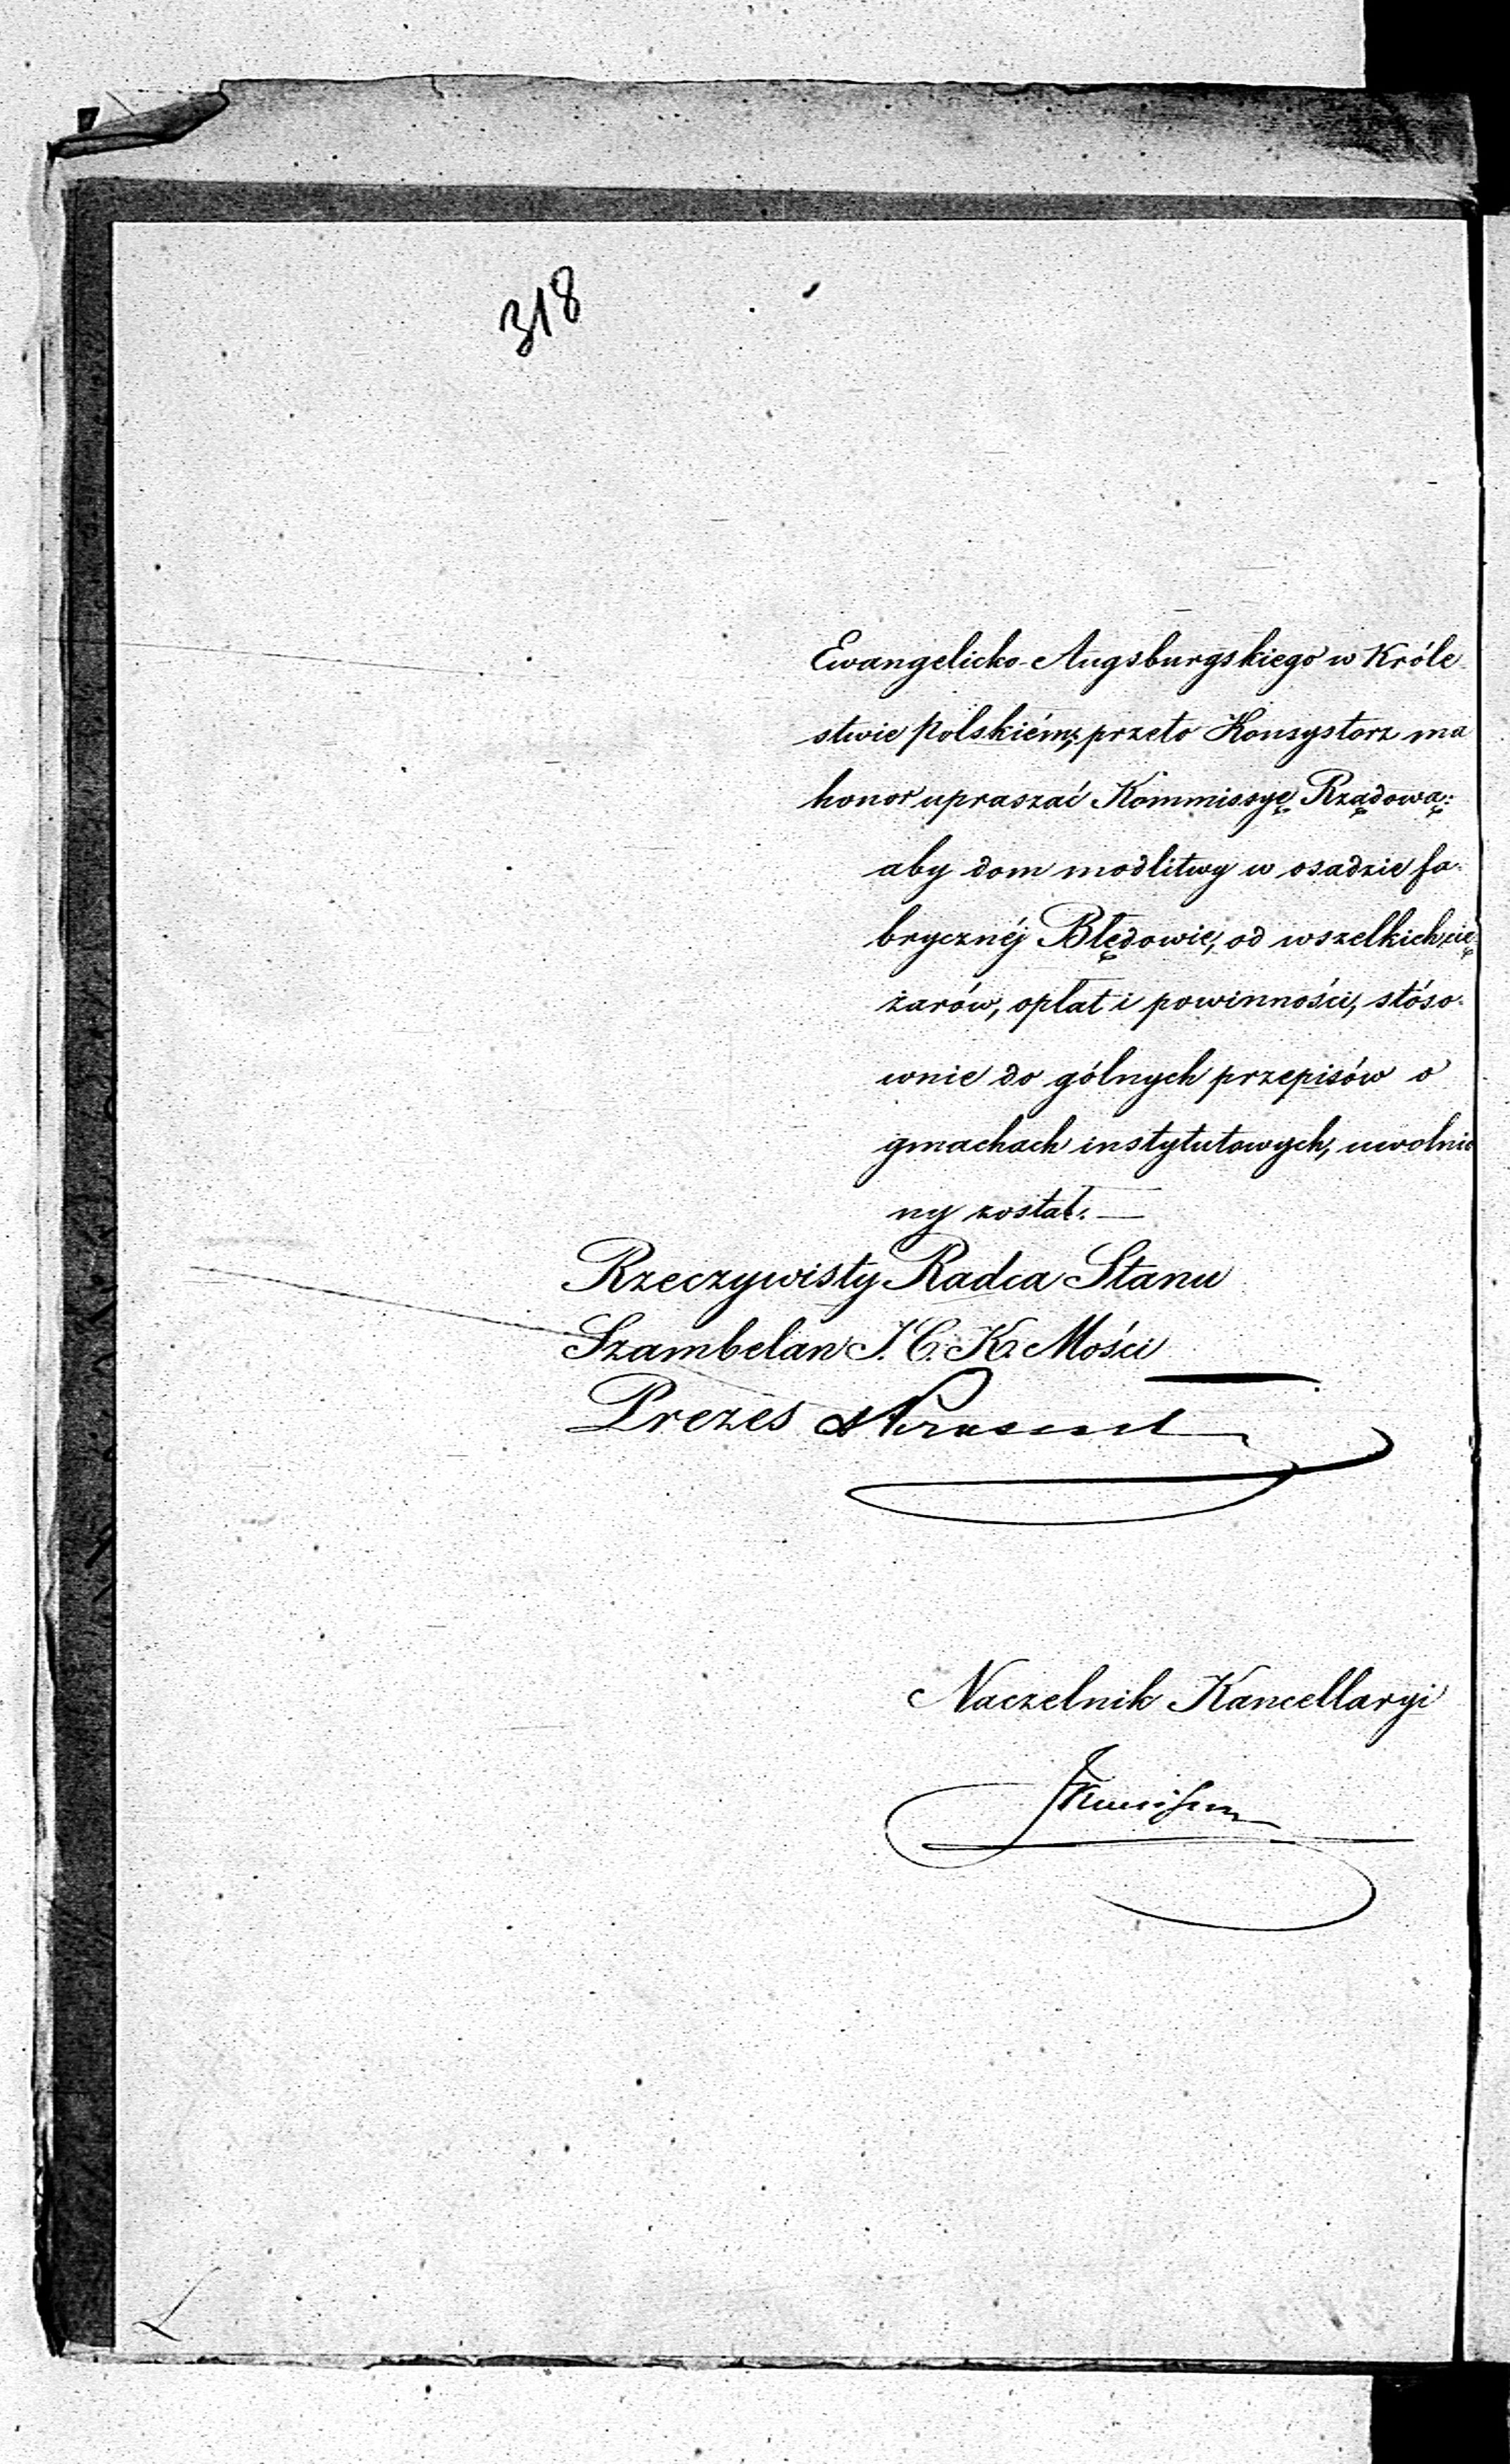 318
Ewangelicko-Augsburgskiego w Króle
stwie Polskiém; przeto Konsystorz ma
honor upraszać Kommissyę Rządową:
aby dom modlitwy w osadzie fa-
brycznéj Błędowie, od wszelkich cię-
żarów, opłat i powinności, stóso-
wnie do gólnych przepisów o
gmachach instytutowych, uwolnio
ny został. —
Rzeczywisty Radca Stanu
Szambelan J. C. K. Mości
Prezes
Naczelnik Kancellaryi